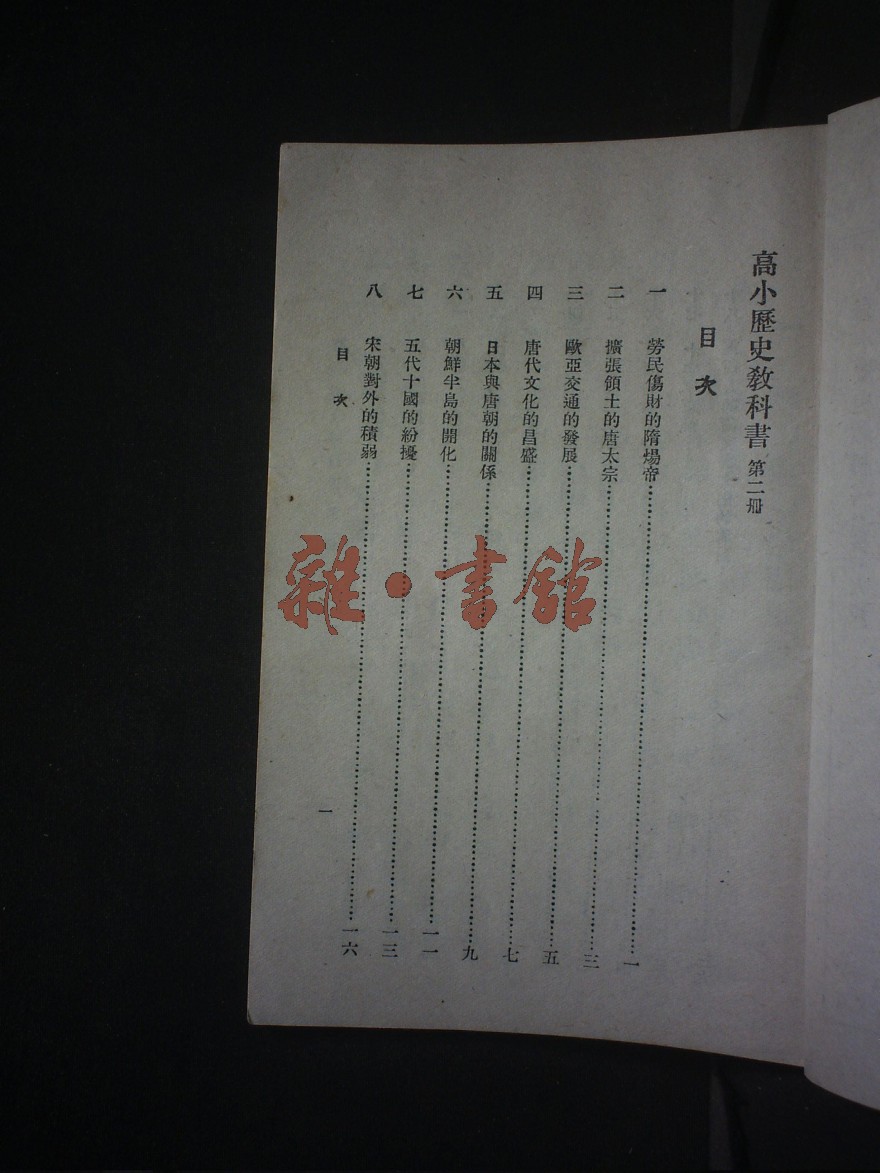 高小歷史教科書 第二册
目次
一 勞民傷財的隋煬帝……一
二 擴張領土的唐太宗……三
三 歐亞交通的發展……五
四 唐代文化的昌盛……七
五 日本與唐朝的關係……九
六 朝鮮半島的開化……一一
七 五代十國的紛擾……一三
八 宋朝對外的積弱……一六
目次 一
雜·書館